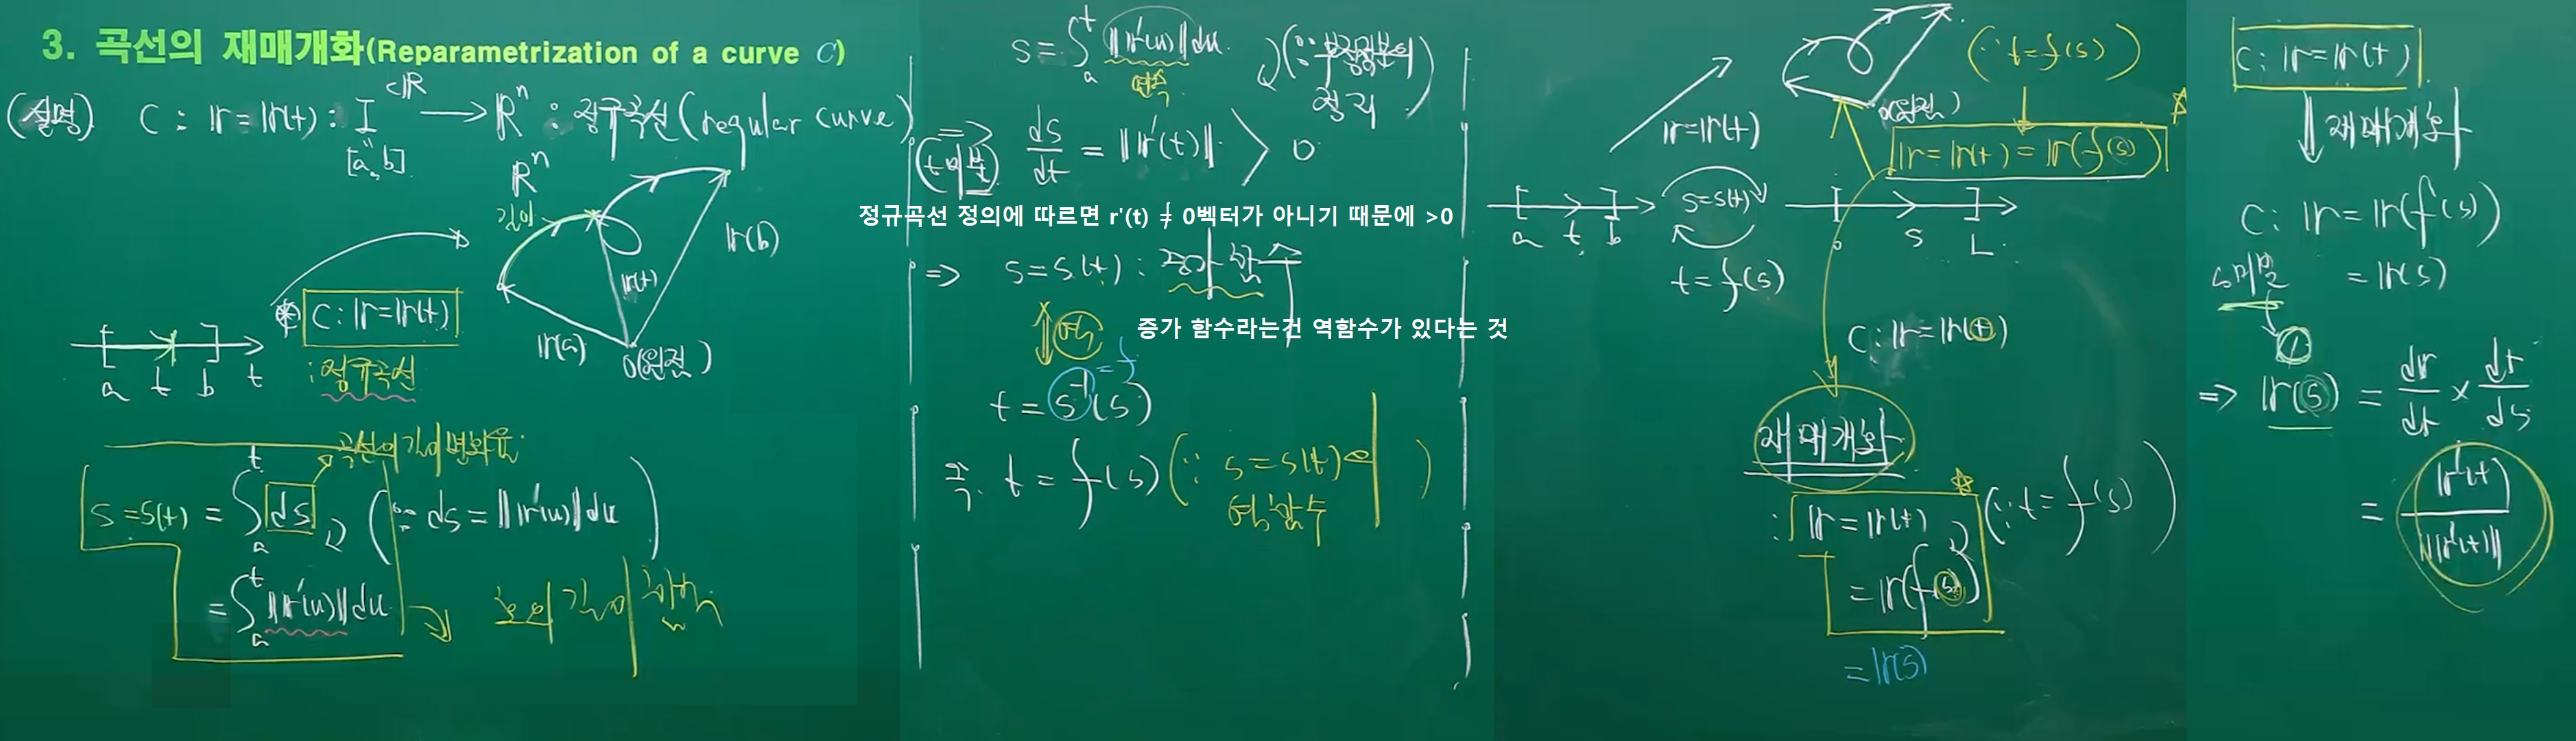 3. 곡선의 재매개화(Reparametrization of a curve C)
(설명) C : r = r(t) : I ⊂ℝ → ℝⁿ : 정규곡선 (regular curve)
[a, b]
ℝⁿ
길이
r(a)
r(t)
r(b)
0(원점)
C : r = r(t)
: 정규곡선
a t b t
곡선의 길이 변화율
s = s(t) = ∫ₐᵗ ds (∵ ds = ‖r'(u)‖du)
= ∫ₐᵗ ‖r'(u)‖du
호의 길이 함수
s = ∫ₐᵗ ‖r'(u)‖du
연속
정리
(t 미분) => ds/dt = ‖r'(t)‖ > 0
정규곡선 정의에 따르면 r'(t) ≠ 0벡터가 아니기 때문에 >0
=> s = s(t) : 증가함수
역
증가 함수라는건 역함수가 있다는 것
= f
t = s⁻¹(s)
즉. t = f(s) (∵ s = s(t)의 역함수)
r = r(t)
0(원점)
(∵ t = f(s))
r = r(t) = r(f(s))
a t b
s = s(t)
t = f(s)
0 s L
C : r = r(t)
재매개화
: r = r(t) (∵ t = f(s))
= r(f(s))
= r(s)
C : r = r(t)
재매개화
C : r = r(f(s))
= r(s)
s미분
=> r'(s) = dr/dt × dt/ds
= r'(t)/‖r'(t)‖